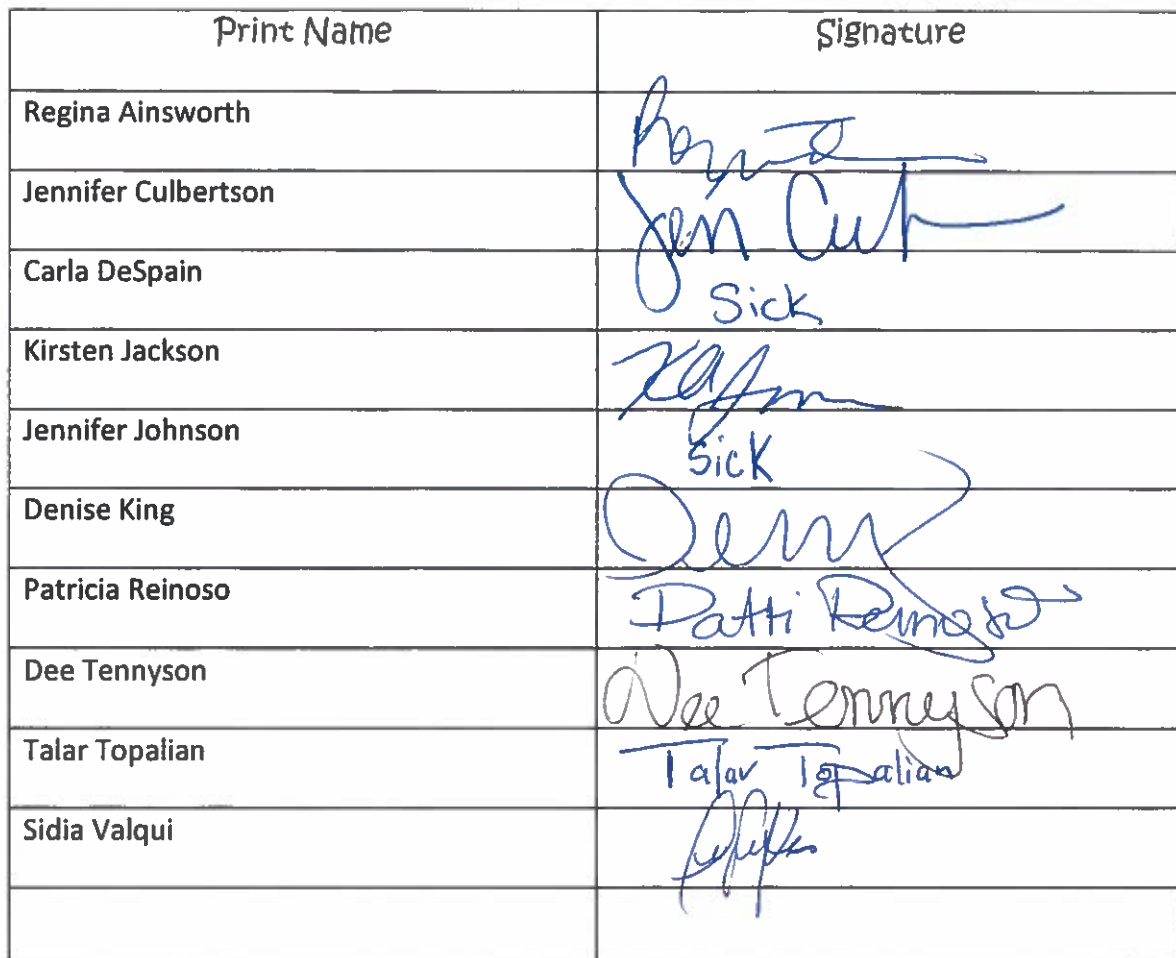 Print Name Signature
Regina Ainsworth
Jennifer Culbertson Jen Cul
Carla DeSpain Sick
Kirsten Jackson
Jennifer Johnson Sick
Denise King
Patricia Reinoso Patti Reinoso
Dee Tennyson Dee Tennyson
Talar Topalian Talar Topalian
Sidia Valqui